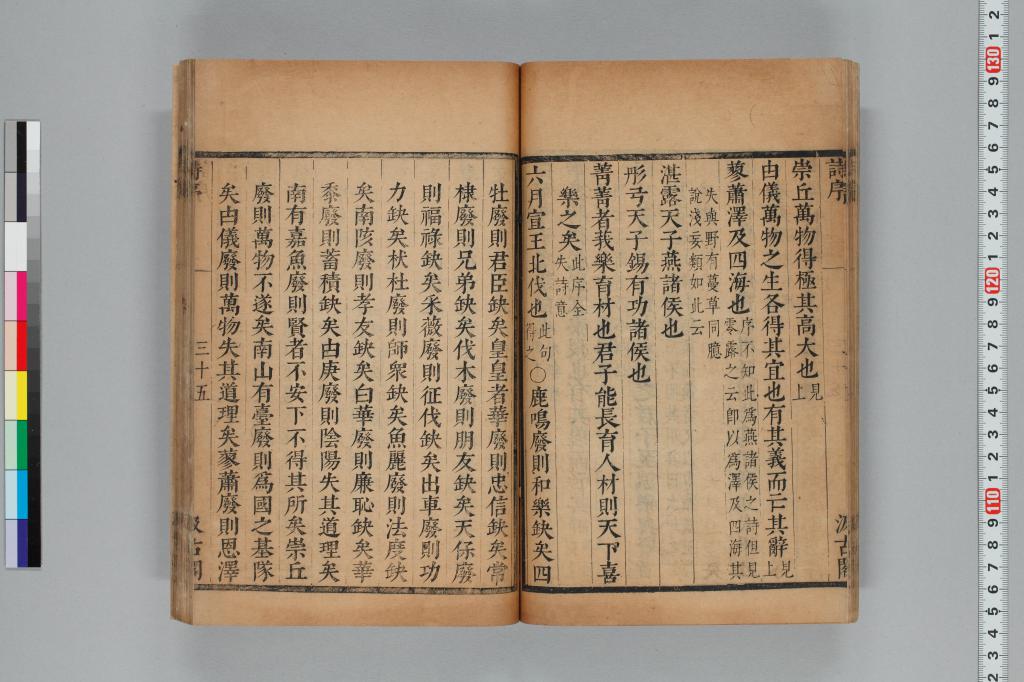 詩序
汲古閣
崇丘萬物得極其高大也見上
由儀萬物之生各得其宜也有其義而亡其辭見上
蓼蕭澤及四海也序不知此爲燕諸侯之詩但見零露之云卽以爲澤及四海其
失與野有蔓草同臆說淺妄類如此云
湛露天子燕諸侯也
彤弓天子錫有功諸侯也
菁菁者莪樂育材也君子能長育人材則天下喜
樂之矣此序全失詩意
六月宣王北伐也此句得之〇鹿鳴廢則和樂缺矣四
牡廢則君臣缺矣皇皇者華廢則忠信缺矣常
棣廢則兄弟缺矣伐木廢則朋友缺矣天保廢
則福祿缺矣采薇廢則征伐缺矣出車廢則功
力缺矣杕杜廢則師衆缺矣魚麗廢則法度缺
矣南陔廢則孝友缺矣白華廢則廉恥缺矣華
黍廢則蓄積缺矣由庚廢則陰陽失其道理矣
南有嘉魚廢則賢者不安下不得其所矣崇丘
廢則萬物不遂矣南山有臺廢則爲國之基隊
矣由儀廢則萬物失其道理矣蓼蕭廢則恩澤
詩序
三十五
汲古閣
130
120
110